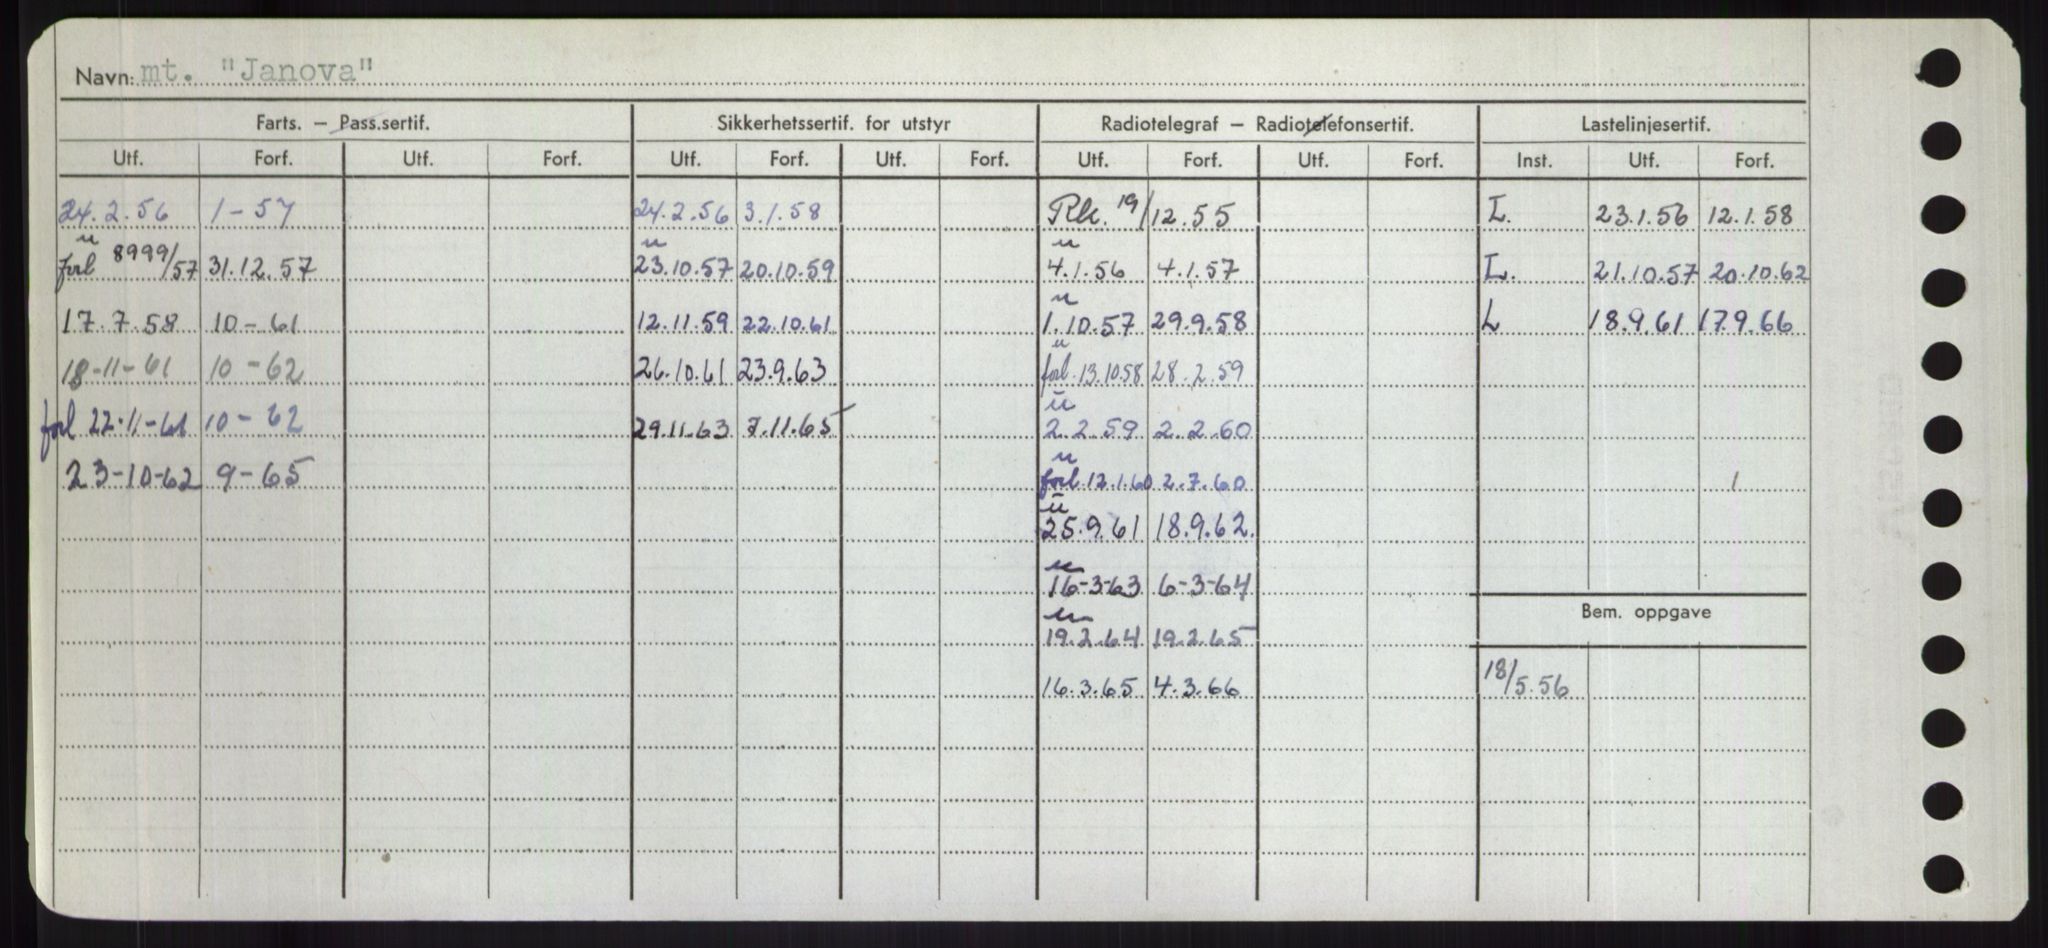 Navn: mt. "Janova"
Farts. — Pass.sertif. Sikkerhetssertif. for utstyr Radiotelegraf — Radiotelefonsertif. Lastelinjesertif.
Utf. Forf. Utf. Forf. Utf. Forf. Utf. Forf. Utf. Forf. Utf. Forf. Inst. Utf. Forf.
24.2.56 1-57 24.2.56 3.1.58 Rk. 19/12.55 L. 23.1.56 12.1.58
u u u
forl 8999/57 31.12.57 23.10.57 20.10.59 4.1.56 4.1.57 L. 21.10.57 20.10.62
u
17.7.58 10-61 12.11.59 22.10.61 1.10.57 29.9.58 L 18.9.61 17.9.66
u
18-11-61 10-62 26.10.61 23.9.63 forl. 13.10.58 28.2.59
u
forl 22.11-61 10-62 29.11.63 7.11.65 2.2.59 2.2.60
u
23-10-62 9-65 forl. 12.1.60 2.7.60
u
25.9.61 18.9.62.
u
16-3-63 6-3-64
Bem. oppgave
u
19.2.64 19.2.65
16.3.65 4.3.66 18/5.56